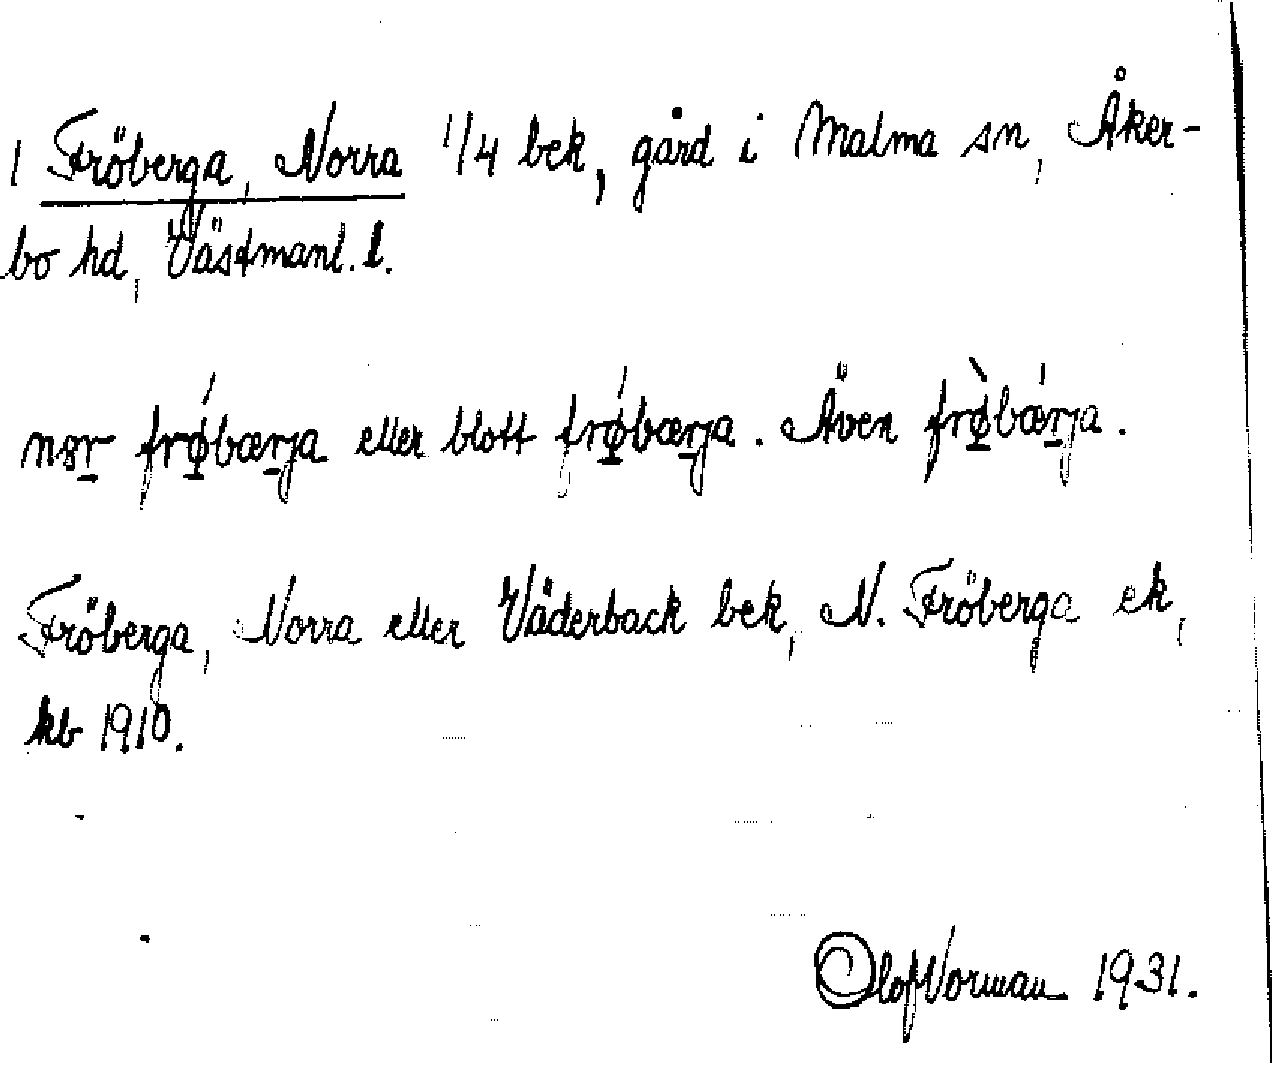 1 Fröberga, Norra 1/4 bek, gård i Malma sn, Åker-
bo hd, Västmanl. l.
nør frǿbærja eller blott frǿbærja. Även frø̀bǽrja.
Fröberga, Norra eller Väderback bek, N. Fröberga ek,
kb 1910.
Olof Norman 1931.